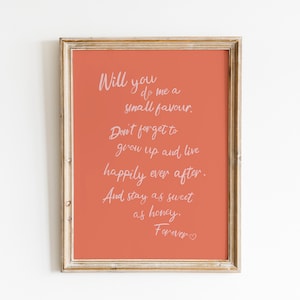 Will you
do me a
small favour.
Don't forget to
grow up and live
happily ever after.
And stay as sweet
as honey.
Forever♡